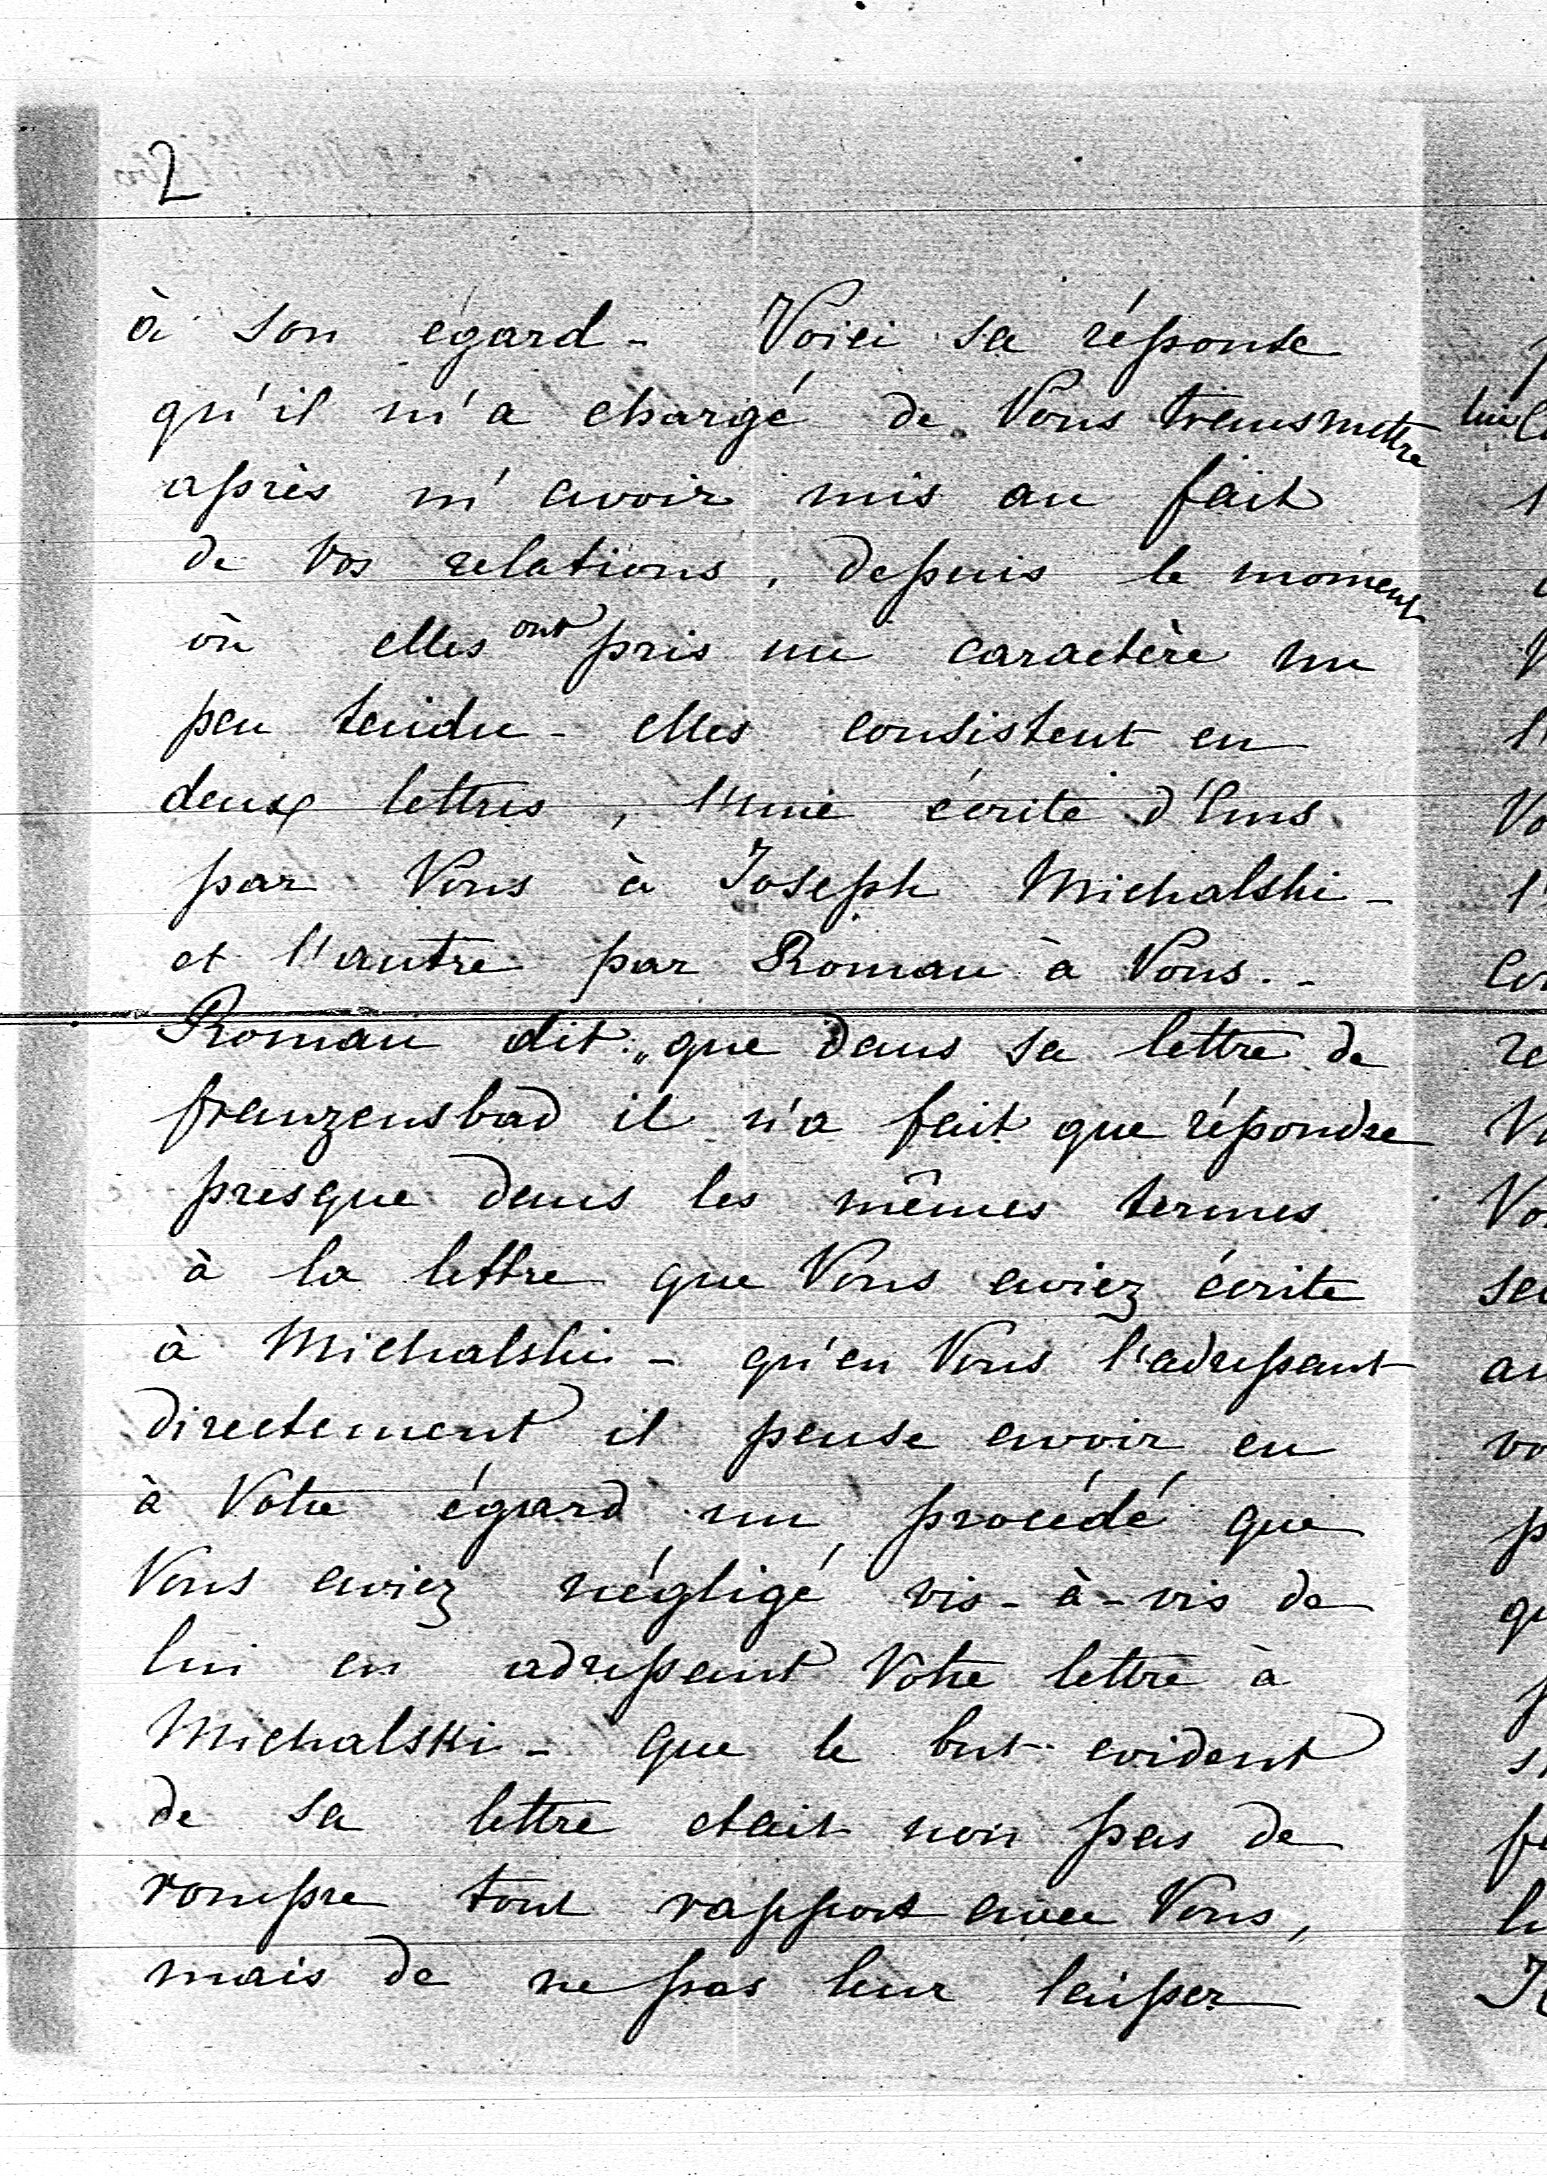 2
à son égard - Voici sa réponse
qu'il m'a chargé de Vous transmettre
après m'avoir mis au fait
de vos relations, depuis le moment
où elles ont pris un caractère un
peu tendu - elles consistent en
deux lettres, l'une écrite d'Ems
par Vous à Joseph Michalski -
et l'autre par Roman à Vous. -
Roman dit „que dans sa lettre de
franzensbad il n'a fait que répondre
presque dans les mêmes termes
à la lettre que Vous aviez écrite
à Michalski - qu'en Vous l'adressant
directement il pense avoir eu
à Votre égard un procédé que
Vous aviez négligé vis-à-vis de
lui en adressant Votre lettre à
Michalski - que le but evident
de sa lettre etait non pas de
rompre tout rapport avec Vous,
mais de ne pas leur laisser